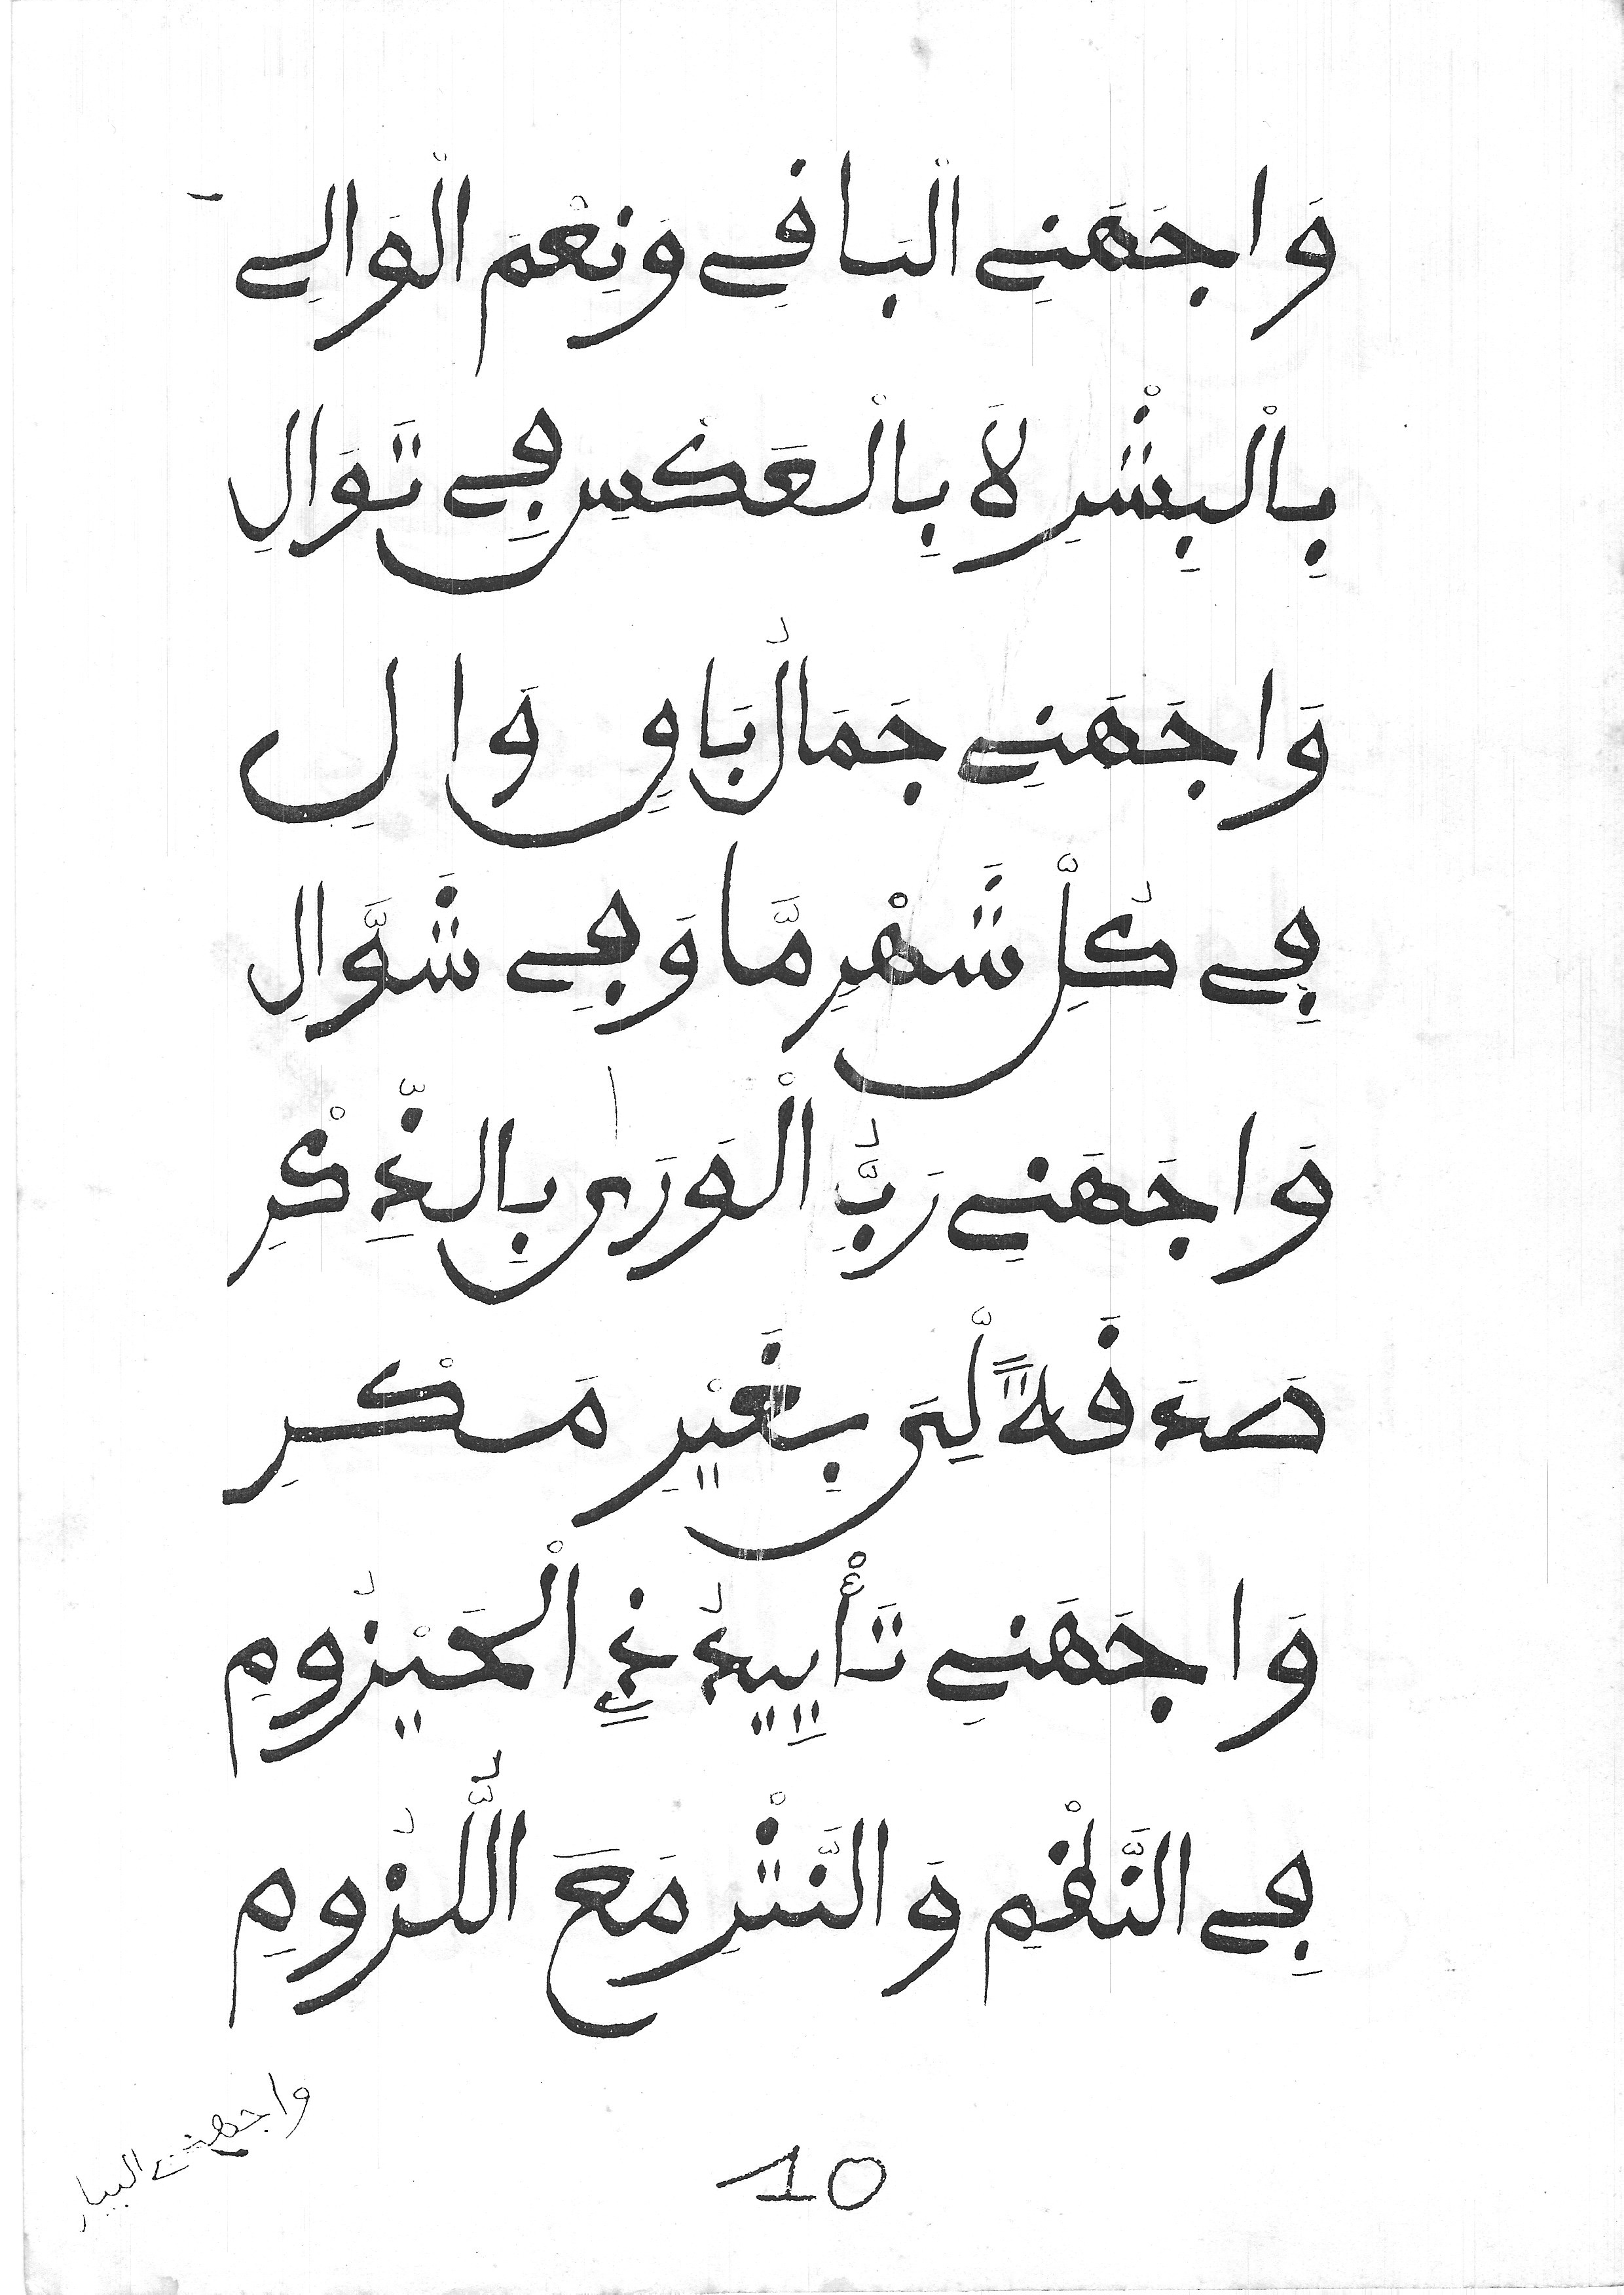 وَاجَهَنِے الْبَافِے وَنِعْمَ الْوَالِے
بِالْبِشْرِ لَا بِالْعَكْسِ ڢِے تَوَالِ
وَاجَهَنِے جَمَالُ بَاوٍ وَالِ
ڢِے كُلِّ شَهْرٍ مَّا وَڢِے شَوَّالِ
وَاجَهَنِے رَبُّ الْوَرَىٰ بِالذِّكْرِ
صَدَفَةً لِّى بِغَيْرِ مَكْرِ
وَاجَهَنِے تَأْيِيدُ ذِے الْحَيْزُومِ
ڢِے النَّظْمِ وَالنَّثْرِ مَعَ اللُّزُومِ
واجهنے البيار
10